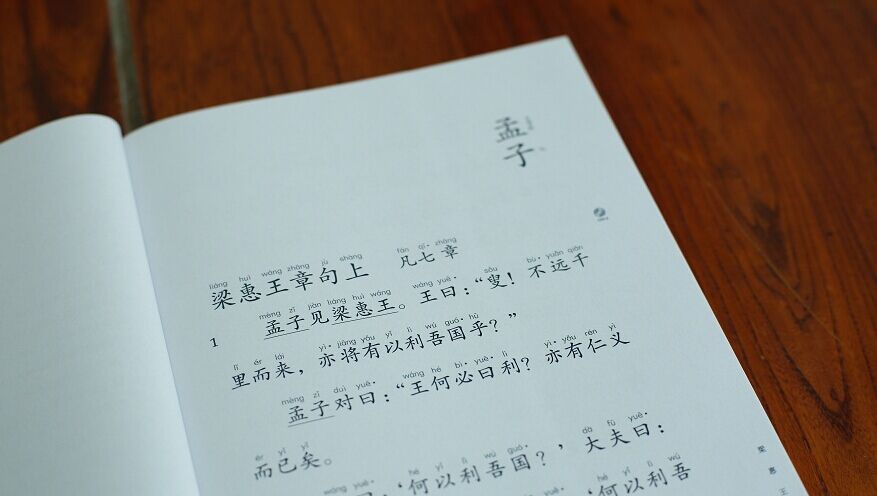 孟子
liáng huì wáng zhāng jù shàng fán qī zhāng
梁惠王章句上 凡七章
mèng zǐ jiàn liáng huì wáng wáng yuē sǒu bù yuǎn qiān
1 孟子见梁惠王。王曰:“叟!不远千
lǐ ér lái yì jiāng yǒu yǐ lì wú guó hū
里而来,亦将有以利吾国乎?”
mèng zǐ duì yuē wáng hé bì yuē lì yì yǒu rén yì
孟子对曰:“王何必曰利?亦有仁义
ér yǐ yǐ dà fū yuē
而已矣。
wáng yuē hé yǐ lì wú guó
‘何以利吾国?’大夫曰:
hé yǐ lì wú
‘何以利吾
梁惠王